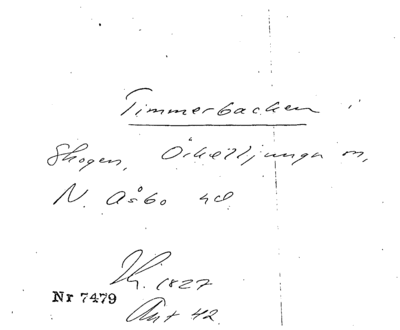 Timmerbacken i
Skogen, Örkelljunga sn,
N. Åsbo hd
Hr. 1827
Nr 7479
Ant 42